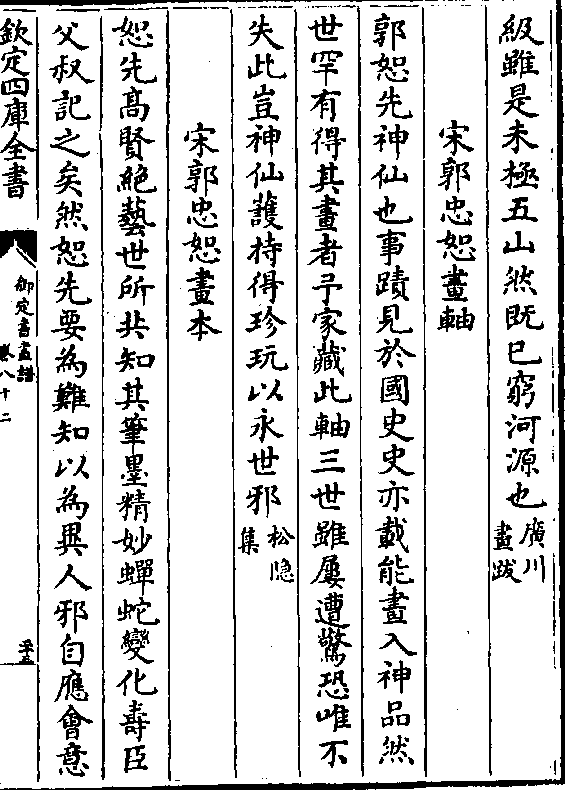 級雖是未極五山然既已窮河源也廣川畫跋
宋郭忠恕畫軸
郭恕先神仙也事蹟見於國史史亦載能畫入神品然
世罕有得其畫者予家藏此軸三世雖屢遭驚恐唯不
失此豈神仙䕶持得珍玩以永世邪松隠集
宋郭忠恕畫本
恕先髙賢絶藝世所共知其筆墨精妙蟬蛇變化壽臣
父叔記之矣然恕先要為難知以為異人邪自應會意
欽定四庫全書
御定書畫譜
卷八十二